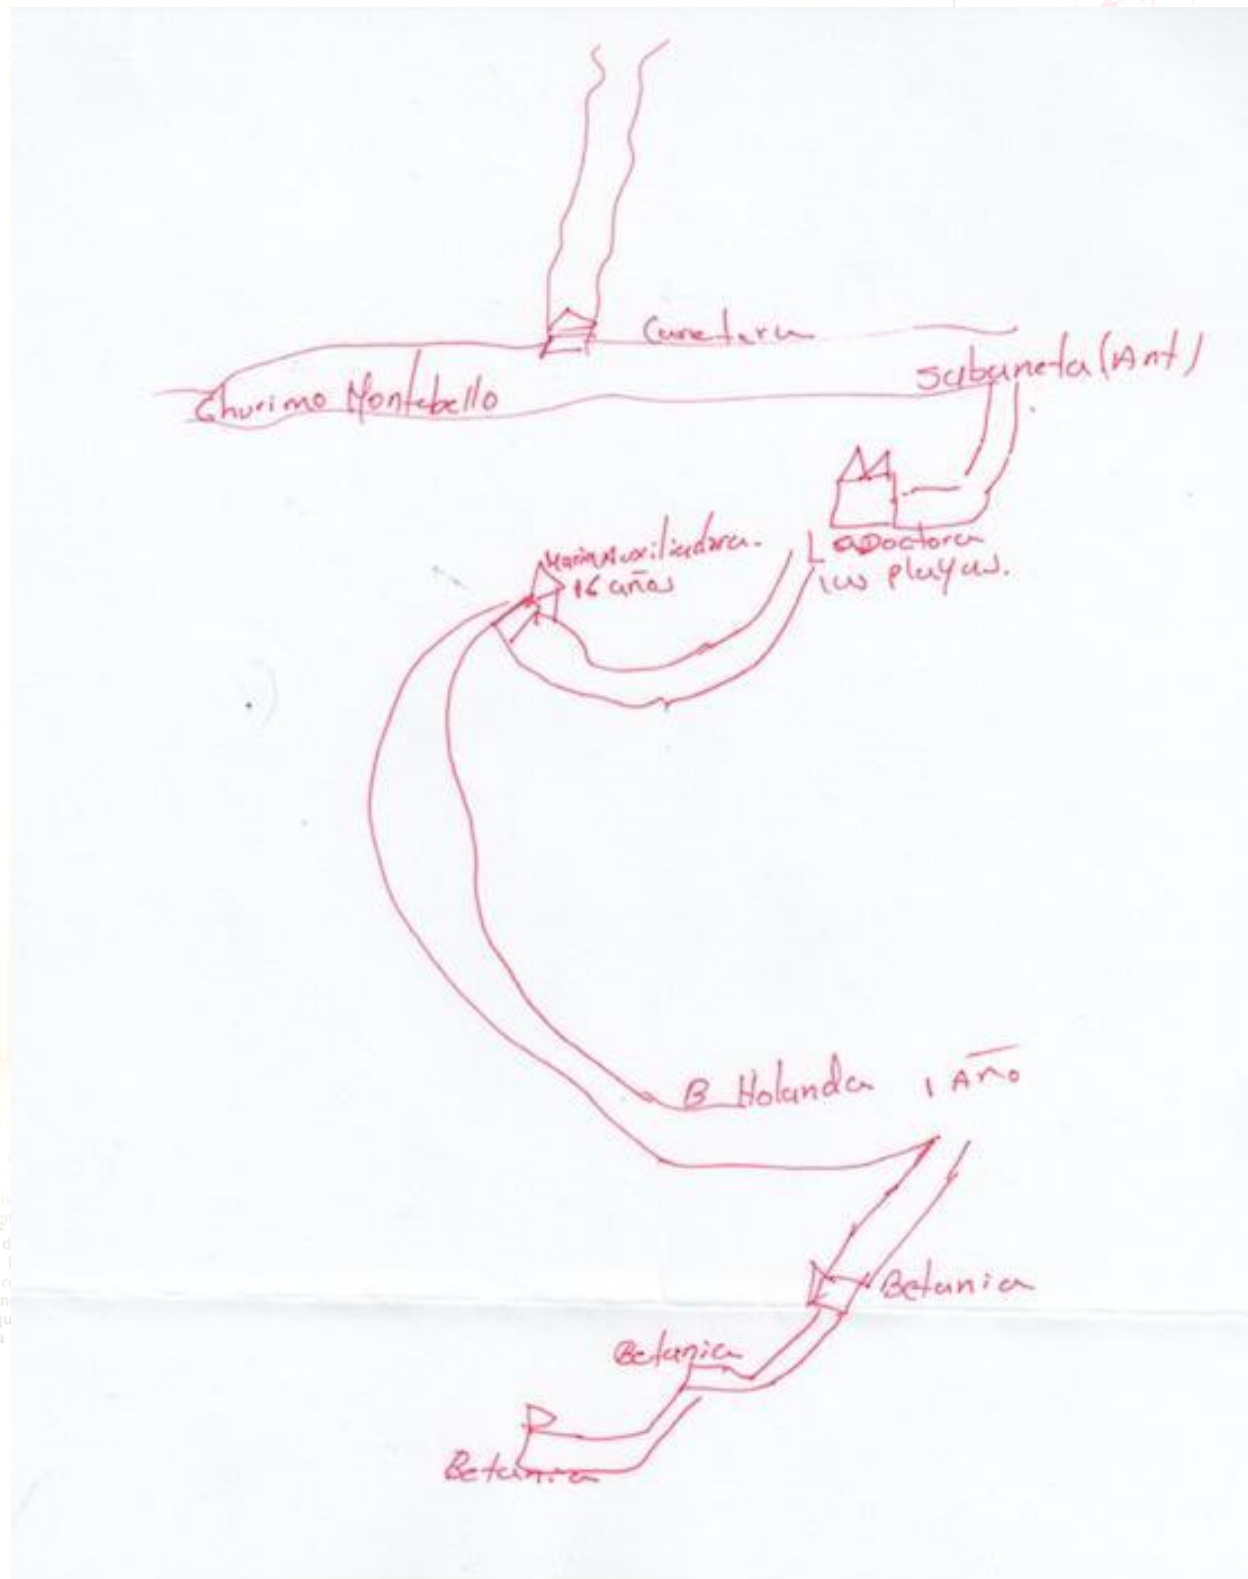 Carretera
Sabaneta (Ant)
Churimo Montebello
Maria Auxiliadora.
16 años
La Doctora
las playas.
B Holanda 1 Año
Betania
Betania
Betania